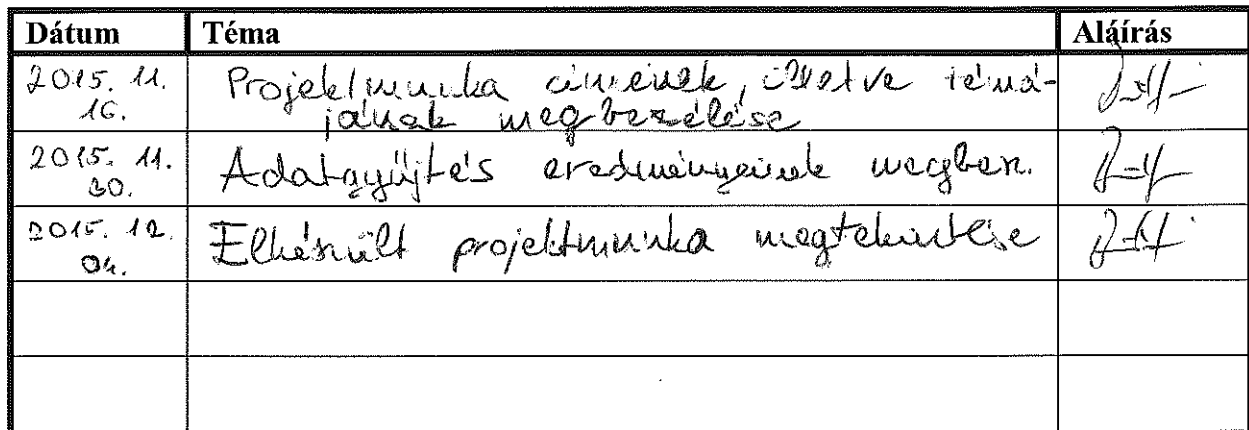 Dátum Téma Aláírás
2015. 11. Projektmunka címének, illetve témá-
16. jának megbeszélése
2015. 11. Adatgyűjtés eredményeinek megbesz.
30.
2015. 12. Elkészült projektmunka megtekintése
04.